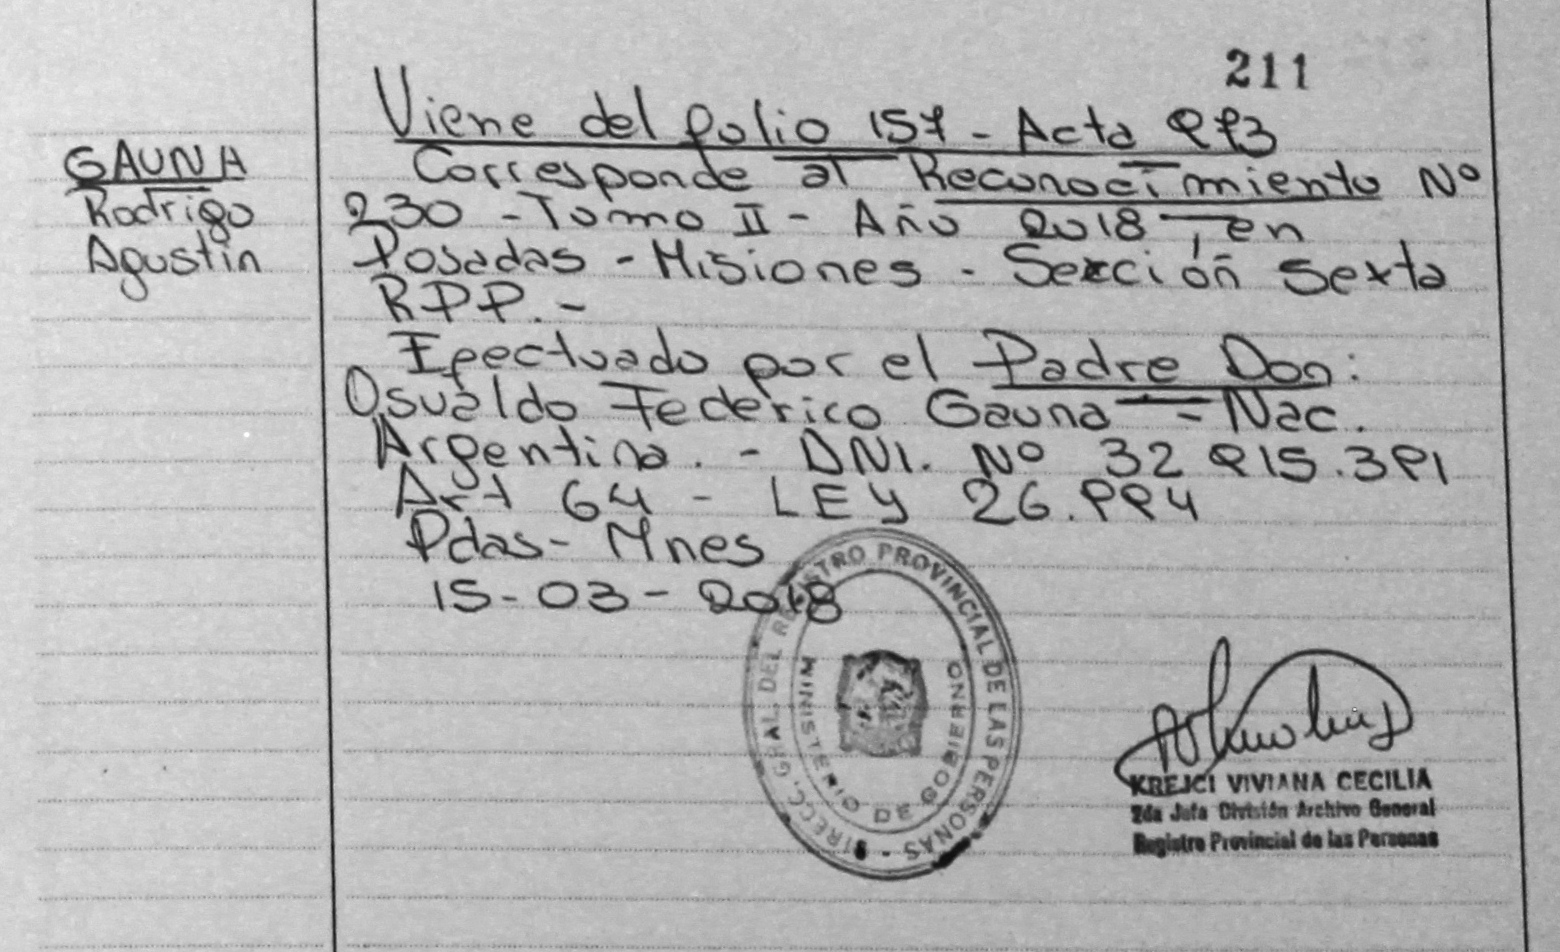 211
Viene del folio 157 - Acta 973
GAUNA
Rodrigo
Agustín
Corresponde al Reconocimiento Nº
230 - Tomo II - Año 2018, en
Posadas - Misiones - Sección Sexta
RPP. -
Efectuado por el Padre Don:
Osvaldo Federico Gauna - Nac.
Argentina. - DNI. Nº 32 915.391
Art 64 - LEY 26.994
Pdas - Mnes
15-03-2018
DIRECC. GRAL. DEL REGISTRO PROVINCIAL DE LAS PERSONAS -
MINISTERIO DE GOBIERNO
KREJCI VIVIANA CECILIA
2da Jefa División Archivo General
Registro Provincial de las Personas